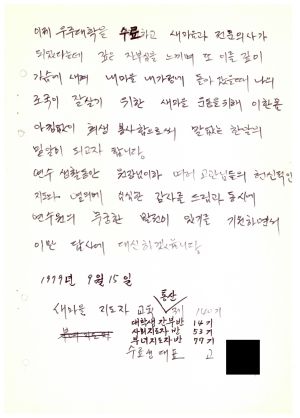 이제 우주대학을 수료하고 새마을과 전문의사가
되었다는데 깊은 자부심을 느끼며 또 이를 깊이
가슴에 새며 내마을 내가정에 돌아 갔을때 나의
조국이 잘살기 위한 새마을 운동을위해 이한몸
아낌없이 희생 봉사함으로써 말없는 한알의
밀알이 되고자 합니다
연수 생활동안 원장님이하 여러 교관님들의 헌신적인
지도와 심심한 감사를 드림과 동시에
연수원의 무궁한 발전이 있기를 기원하면서
이만 답사에 대신하겠습니다
1979년 9월 15일
새마을 지도자 교회 통산 제 140기
대학생간부반 14기
사회지도자반 53기
부녀지도자반 77기
수료생 대표 고